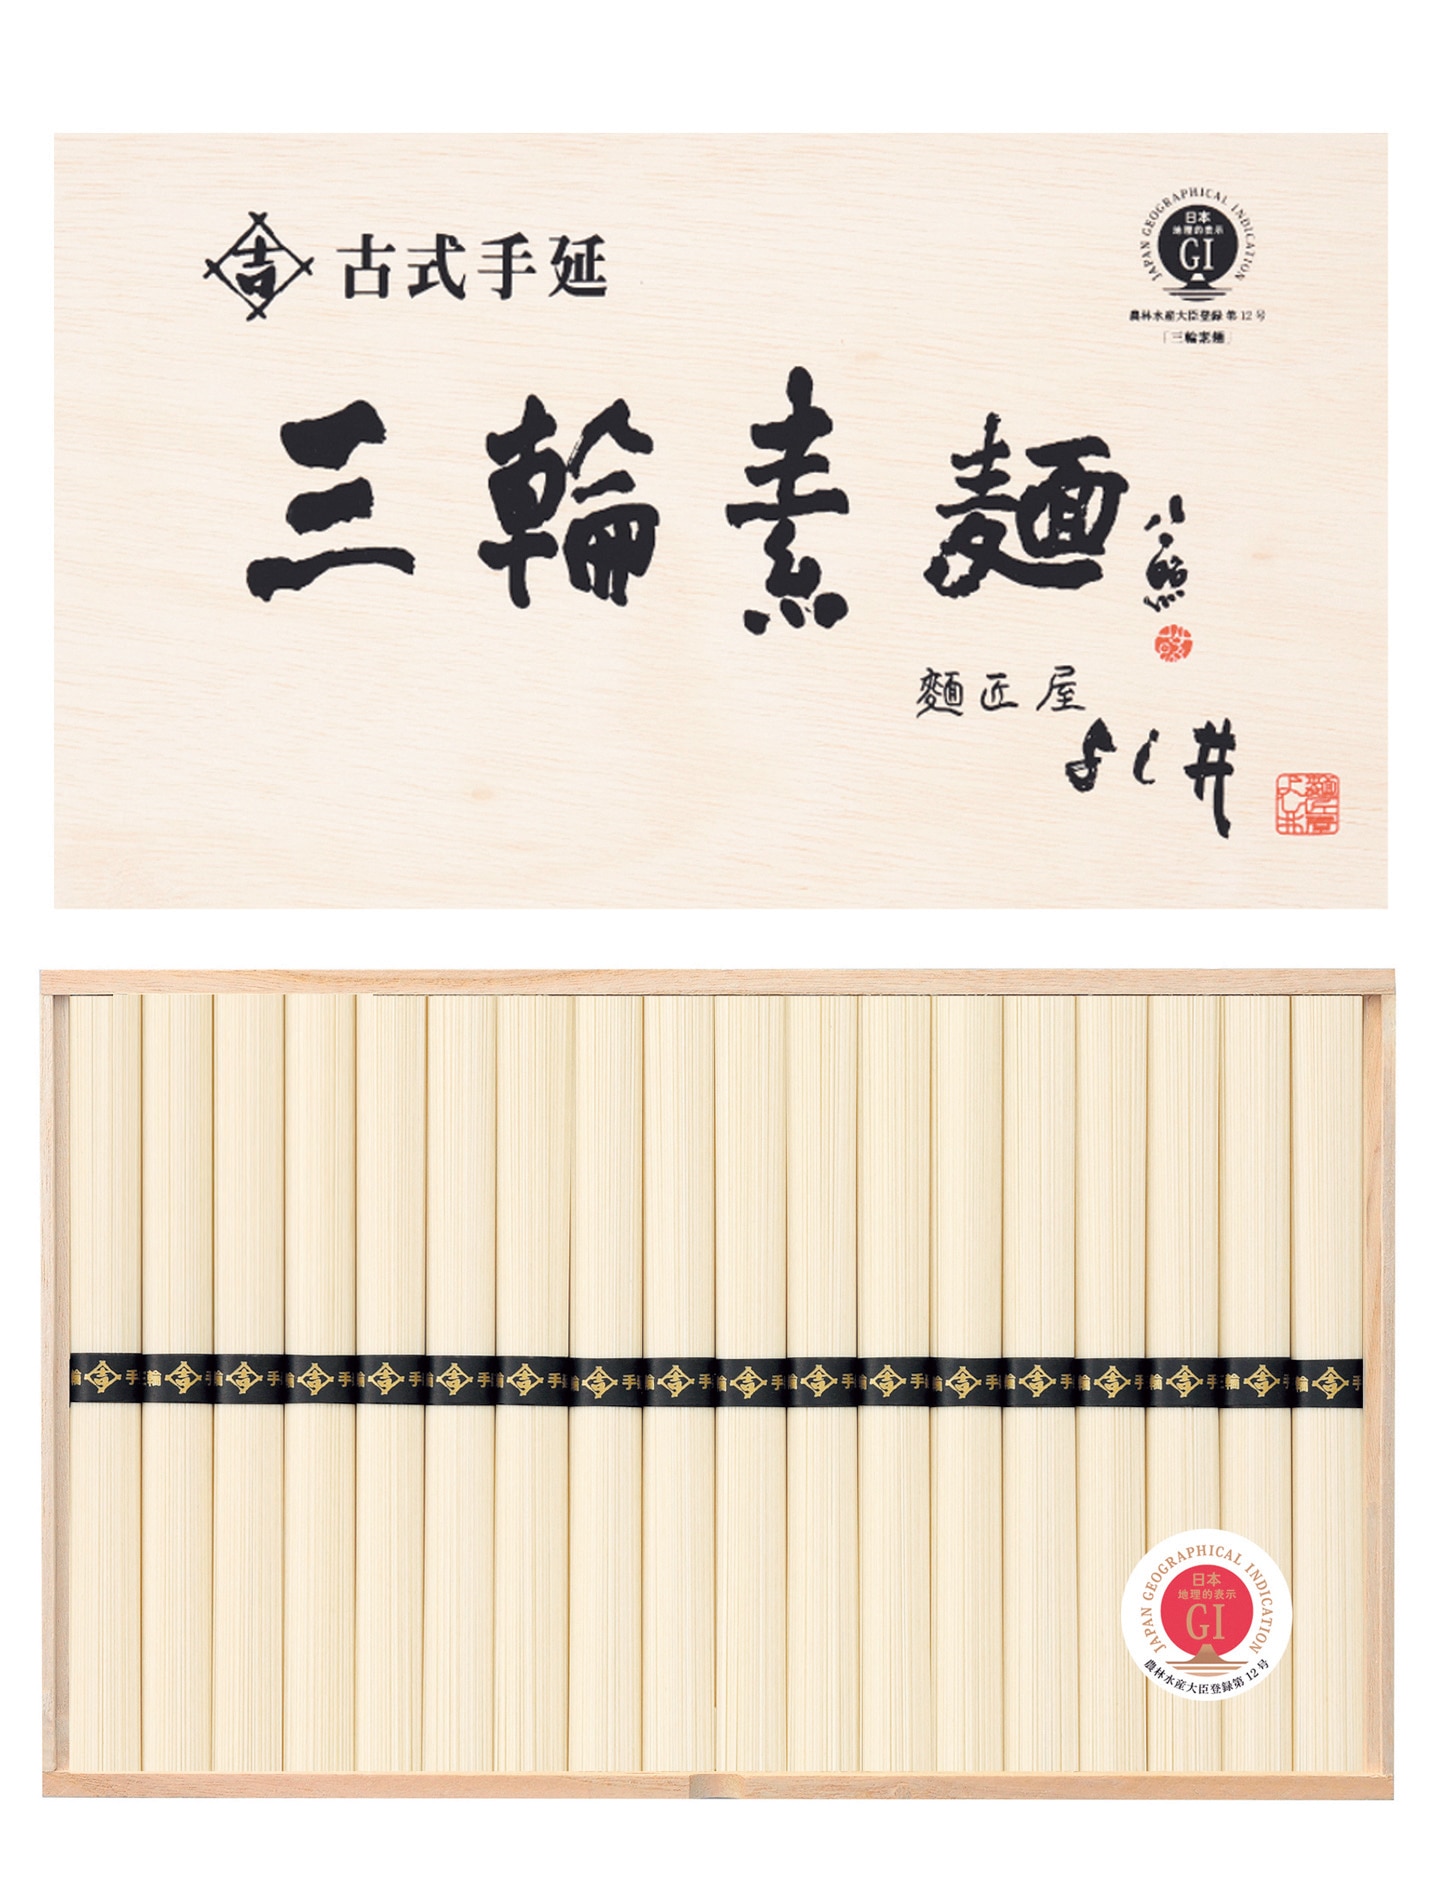 吉 古式手延
JAPAN GEOGRAPHICAL INDICATION
日本
地理的表示
GI
農林水産大臣登録 第12号
「三輪素麺」
三輪素麺
麺匠屋
よし井
輪 吉 手
JAPAN GEOGRAPHICAL INDICATION
日本
地理的表示
GI
農林水産大臣登録第12号